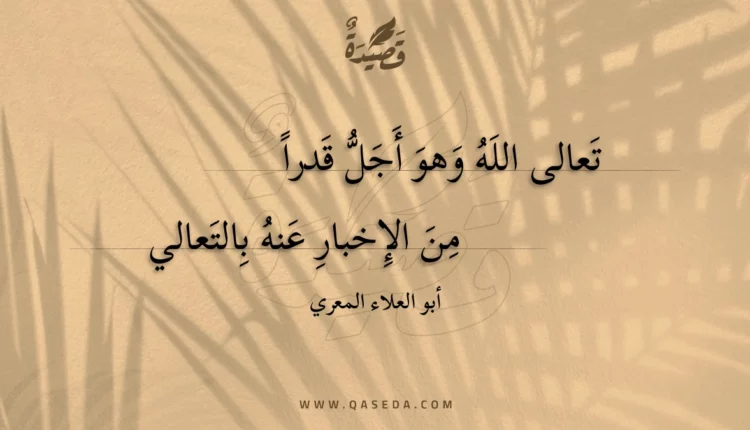 قَصِيْدَةٌ
تَعالى اللَهُ وَهوَ أَجَلُّ قَدراً
مِنَ الإِخبارِ عَنهُ بِالتَعالي
أبو العلاء المعري
WWW.QASEDA.COM